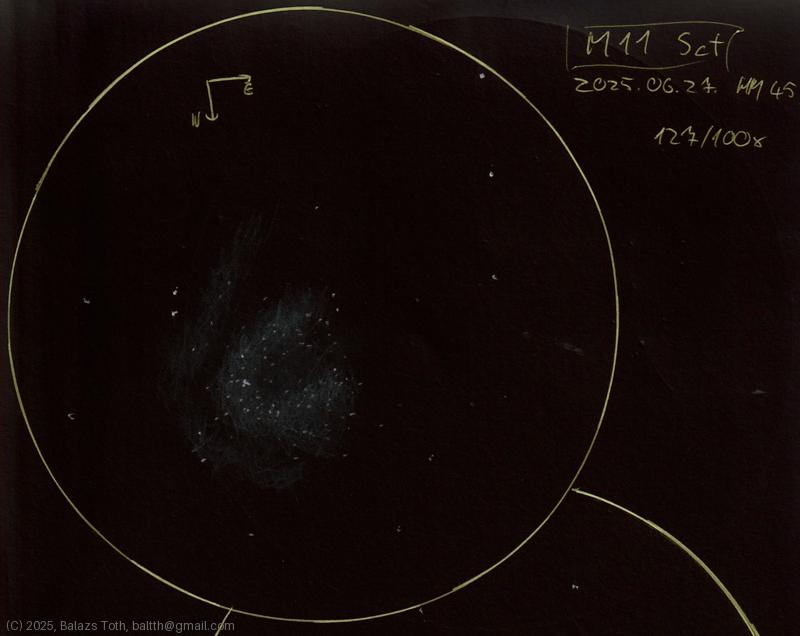 M11 Sct
2025.06.27. MM 45
127/100x
E
N
(C) 2025, Balazs Toth, baltth@gmail.com